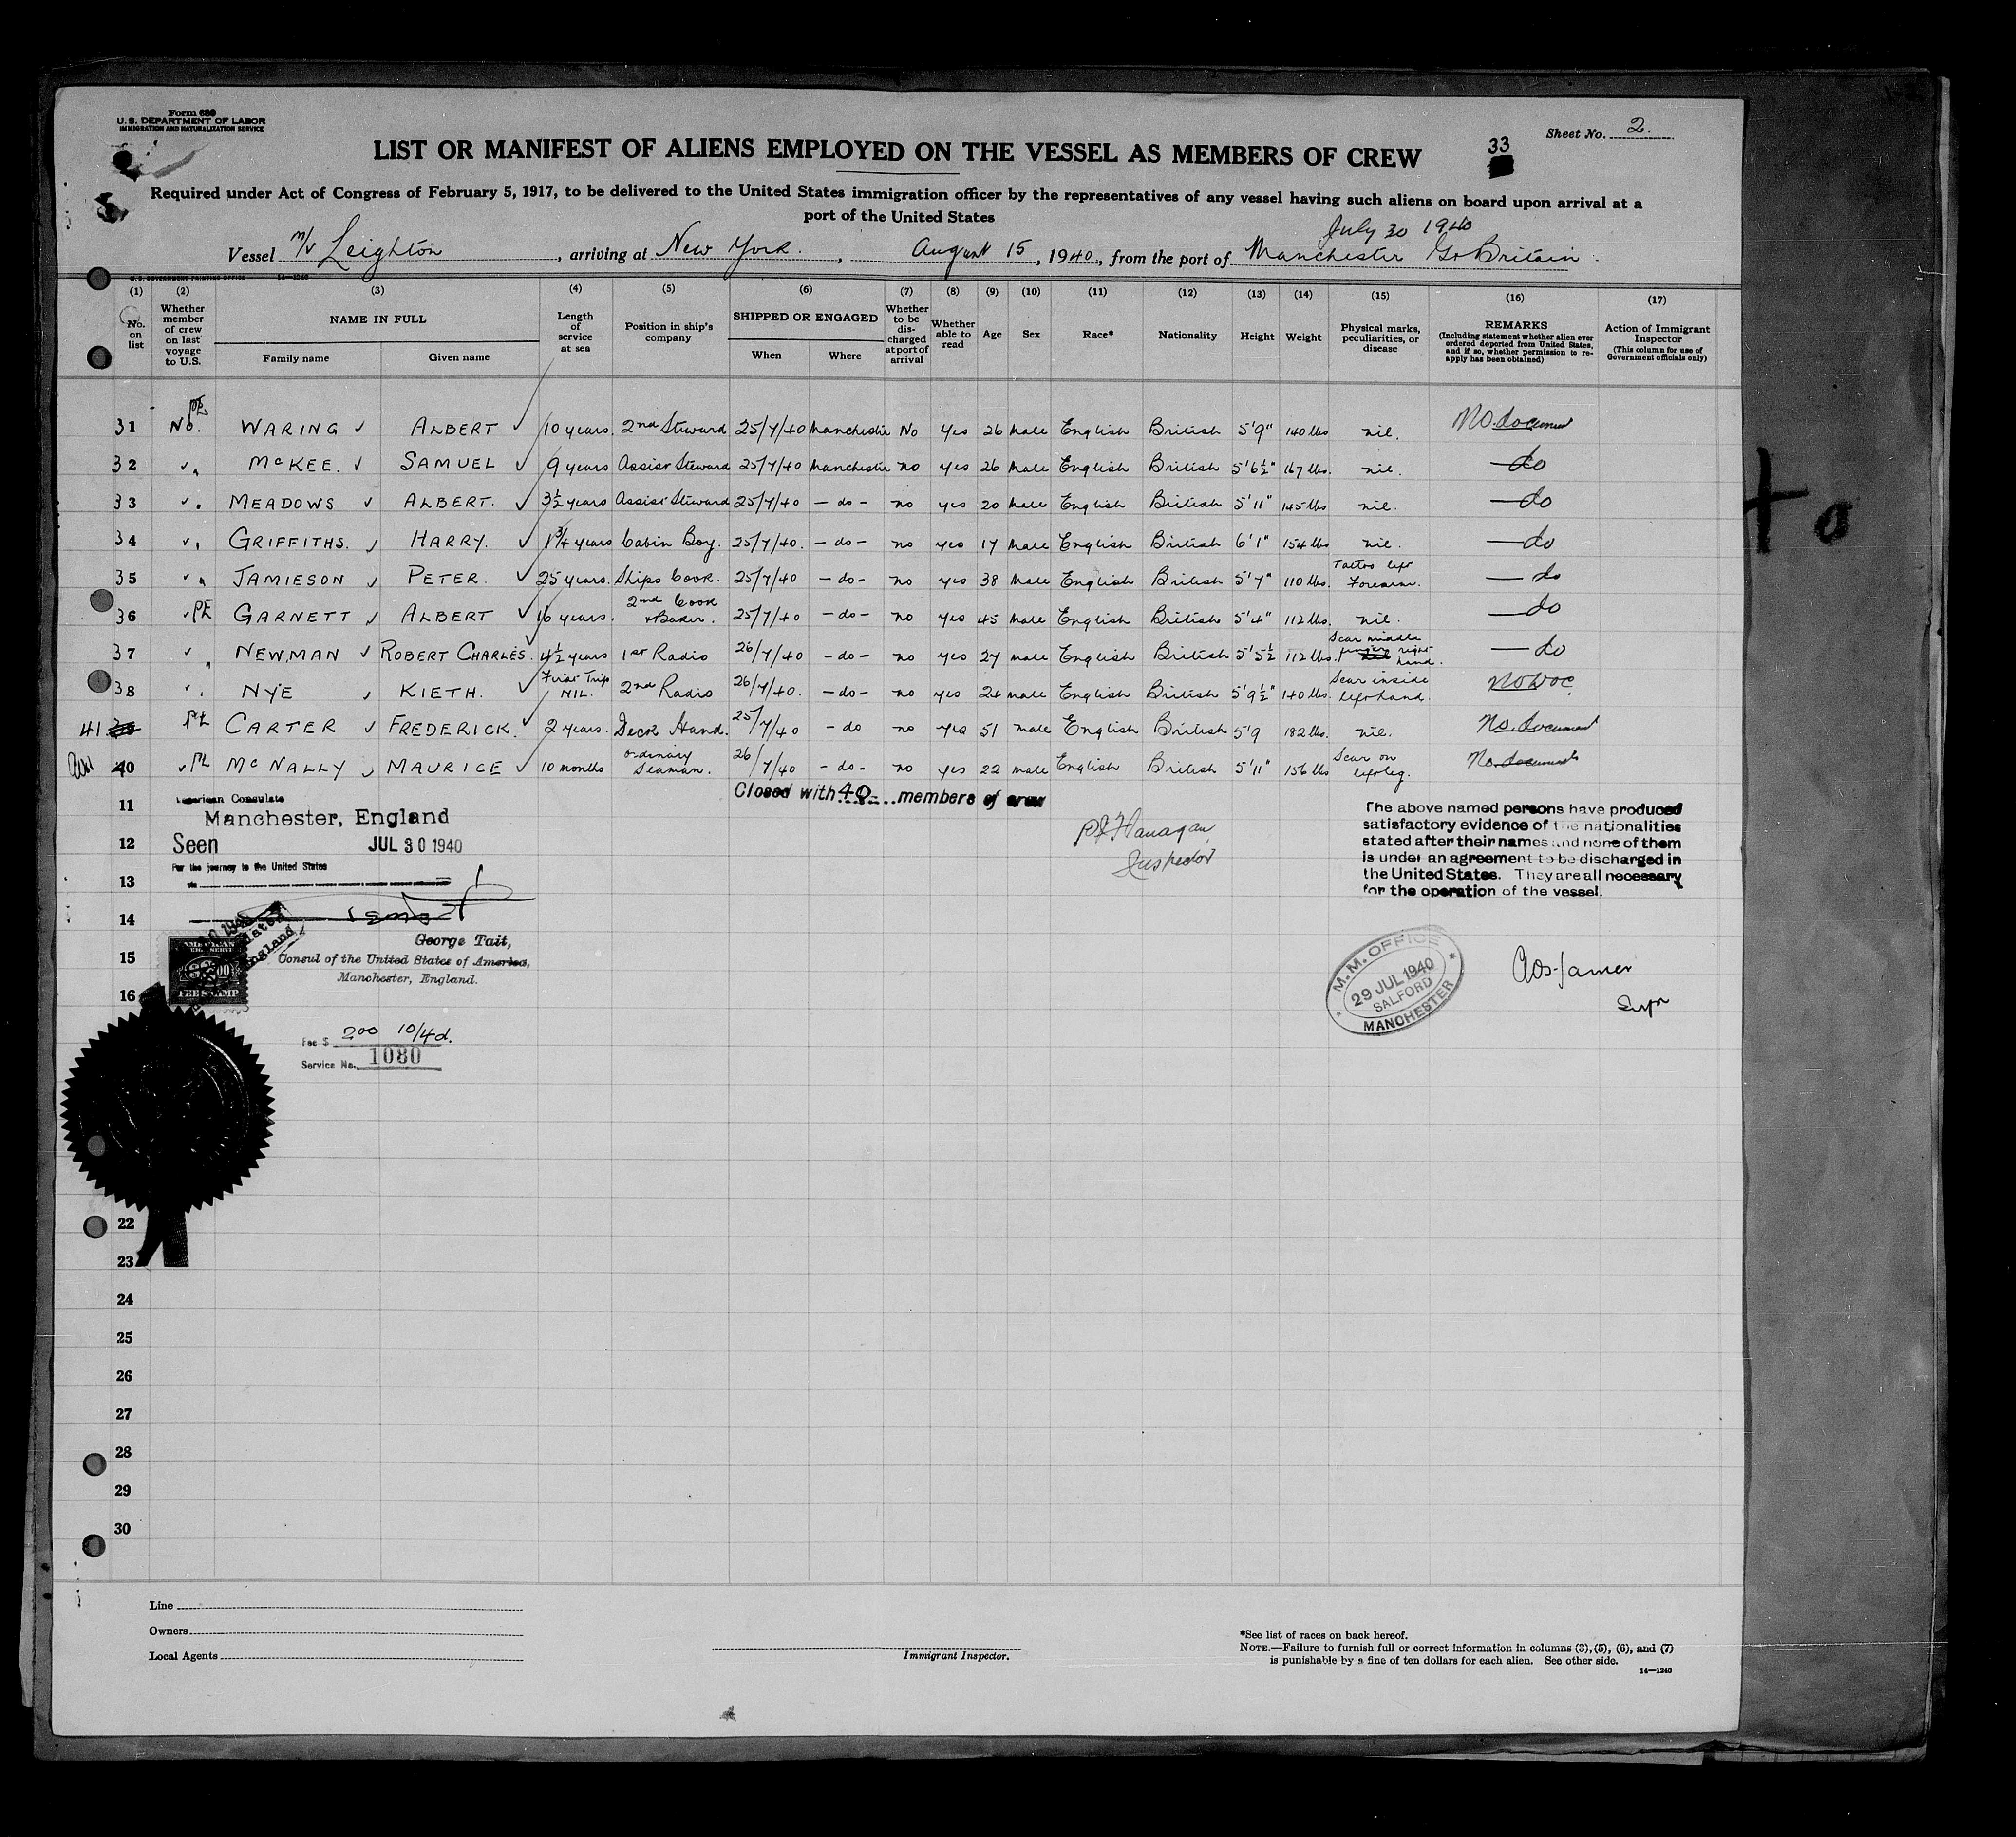 Form 689
U. S. DEPARTMENT OF LABOR
IMMIGRATION AND NATURALIZATION SERVICE
Sheet No. 2.
33
LIST OR MANIFEST OF ALIENS EMPLOYED ON THE VESSEL AS MEMBERS OF CREW
Required under Act of Congress of February 5, 1917, to be delivered to the United States immigration officer by the representatives of any vessel having such aliens on board upon arrival at a
port of the United States
July 30 1940
Vessel M/V Leighton, arriving at New York., August 15, 1940, from the port of Manchester Gr Britain.
U. S. GOVERNMENT PRINTING OFFICE 14—1240
(1) (2) (3) (4) (5) (6) (7) (8) (9) (10) (11) (12) (13) (14) (15) (16) (17)
No. on list
Whether member of crew on last voyage to U.S.
NAME IN FULL
Family name
Given name
Length of service at sea
Position in ship's company
SHIPPED OR ENGAGED
When
Where
Whether to be discharged at port of arrival
Whether able to read
Age
Sex
Race*
Nationality
Height
Weight
Physical marks, peculiarities, or disease
REMARKS
(Including statement whether alien ever ordered deported from United States, and if so, whether permission to reapply has been obtained)
Action of Immigrant Inspector
(This column for use of Government officials only)
31 No. PE WARING ✓ ALBERT ✓ 10 years. 2nd Steward 25/7/40 Manchester No Yes 26 Male English British 5'9" 140 lbs nil. No. document
32 " McKEE. ✓ SAMUEL ✓ 9 years Assist Steward 25/7/40 Manchester no yes 26 Male English British 5'6½" 167 lbs. nil. — do
33 " MEADOWS ✓ ALBERT. ✓ 3½ years Assist Steward 25/7/40 — do — no yes 20 Male English British 5'11" 145 lbs nil. — do
34 " GRIFFITHS. ✓ HARRY. ✓ 1¾ years Cabin Boy. 25/7/40. — do — no yes 17 Male English British 6'1" 154 lbs nil. — do
35 " JAMIESON ✓ PETER. ✓ 25 years. Ships Cook. 25/7/40 — do — no yes 38 Male English British 5'7" 110 lbs. Tattoo left Forearm. — do
36 PE GARNETT ✓ ALBERT ✓ 16 years. 2nd Cook & Baker. 25/7/40 — do — no yes 45 Male English British 5'4" 112 lbs. nil. — do
37 " NEWMAN ✓ ROBERT CHARLES. 4½ years 1st Radio 26/7/40 — do — no yes 27 male English British 5'5½ 112 lbs. Scar middle finger right hand. — do
38 " NYE ✓ KIETH. ✓ First Trip NIL. 2nd Radio 26/7/40. — do — no yes 24 male English British 5'9½" 140 lbs. Scar inside left hand. NO DOC.
41 PE CARTER ✓ FREDERICK. ✓ 2 years. Deck Hand. 25/7/40 — do no yes 51 male English British 5'9 182 lbs. nil. No. document
40 PE McNALLY ✓ MAURICE ✓ 10 months Ordinary Seaman. 26/7/40 — do — no yes 22 male English British 5'11" 156 lbs Scar on left leg. No. documents
Closed with 40 members of crew
P J Flanagan
Inspector
11
American Consulate
Manchester, England
12 Seen JUL 30 1940
For the journey to the United States
via
13
14
George Tait,
15 Consul of the United States of America,
Manchester, England.
16
AMERICAN
FEE STAMP
Fee $ 2.00 10/4d.
Service No. 1080
The above named persons have produced
satisfactory evidence of the nationalities
stated after their names and none of them
is under an agreement to be discharged in
the United States. They are all necessary
for the operation of the vessel.
M.M. OFFICE
29 JUL 1940
SALFORD
MANCHESTER
22
23
24
25
26
27
28
29
30
Line
Owners
Local Agents
Immigrant Inspector.
*See list of races on back hereof.
NOTE.—Failure to furnish full or correct information in columns (3), (5), (6), and (7)
is punishable by a fine of ten dollars for each alien. See other side.
14—1240